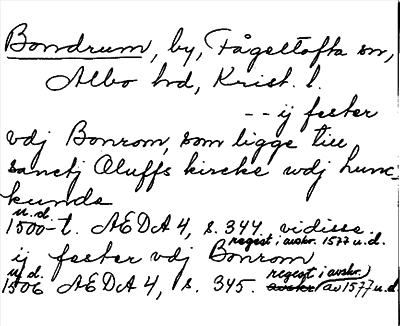 Bondrum, by, Fågeltofta sn,
Albo hd, Krist. l.
-- ij fester
vdj Bonrom, som ligge till
sanctj Oluffs kircke vdj hunc-
kunde
u.d.
1500-t. AEDA 4, s. 344. vidisse.
regest i avskr. 1577 u.d.
ij fester vdj Bonrom
u.d. regest i avskr.
1506 AEDA 4, s. 345. av 1577 u.d.